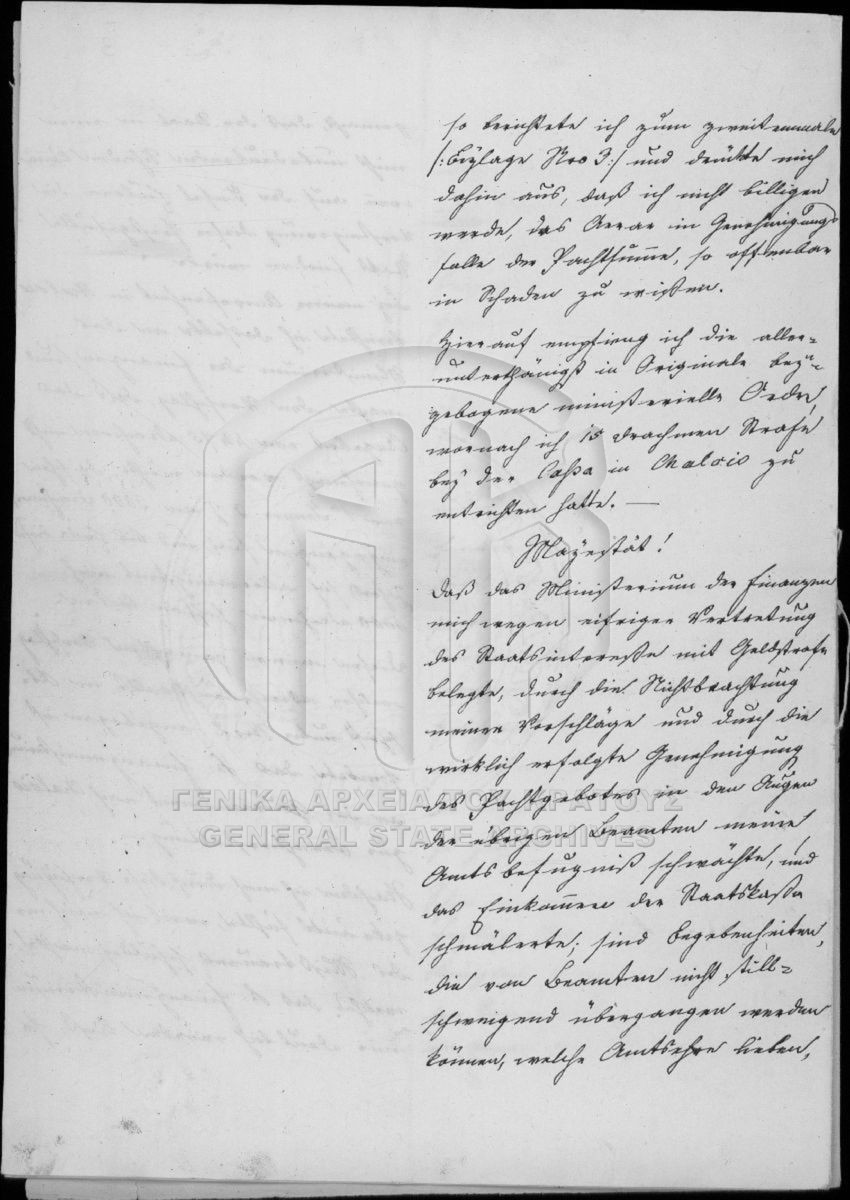 so berichtete ich zum zweitenmale
/: Beÿlage Nro 3 :/ und drückte mich
dahin aus, daß ich nicht billigen
werde, das Aerar in Genehmigungs
falle der Pachtsumme, so offenbar
in Schaden zu wissen.
Hierauf empfieng ich die aller-
unterthänigst in Originale beÿ-
gebogene ministerielle Ordre,
wornach ich 15 Drachmen Strafe
beÿ der Cassa in Chalcis zu
entrichten hatte. —
Mayestät!
Daß das Ministerium der Finanzen
mich wegen eifriger Vertretung
des Staatsinteresse mit Geldstrafe
belegte, durch die Nichtbeachtung
meiner Vorschläge und durch die
wirklich erfolgte Genehmigung
des Pachtgebotes in den Augen
der übrigen Beamten meine
Amtsbefugniß schwächte, und
das Einkommen der Staatskassa
schmälerte; sind Begebenheiten,
die von Beamten nicht still-
schweigend übergangen werden
können, welche Amtsehre lieben,
ΓΕΝΙΚΑ ΑΡΧΕΙΑ ΤΟΥ ΚΡΑΤΟΥΣ
GENERAL STATE ARCHIVES